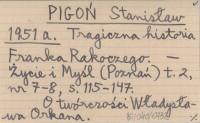 PIGOŃ Stanisław
1951 a. Tragiczna historia
Franka Rakoczego. —
Życie i Myśl (Poznań) t. 2,
nr 7-8, s. 115-147.
O twórczości Władysła-
wa Orkana.